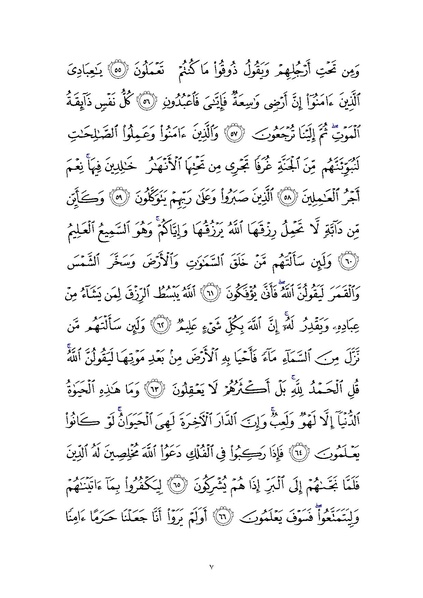 وَمِن تَحْتِ أَرْجُلِهِمْ وَيَقُولُ ذُوقُوا۟ مَا كُنتُمْ تَعْمَلُونَ ٥٥ يَـٰعِبَادِىَ
ٱلَّذِينَ ءَامَنُوٓا۟ إِنَّ أَرْضِى وَٰسِعَةٌ فَإِيَّـٰىَ فَٱعْبُدُونِ ٥٦ كُلُّ نَفْسٍ ذَآئِقَةُ
ٱلْمَوْتِ ۖ ثُمَّ إِلَيْنَا تُرْجَعُونَ ٥٧ وَٱلَّذِينَ ءَامَنُوا۟ وَعَمِلُوا۟ ٱلصَّـٰلِحَـٰتِ
لَنُبَوِّئَنَّهُم مِّنَ ٱلْجَنَّةِ غُرَفًا تَجْرِى مِن تَحْتِهَا ٱلْأَنْهَـٰرُ خَـٰلِدِينَ فِيهَا ۚ نِعْمَ
أَجْرُ ٱلْعَـٰمِلِينَ ٥٨ ٱلَّذِينَ صَبَرُوا۟ وَعَلَىٰ رَبِّهِمْ يَتَوَكَّلُونَ ٥٩ وَكَأَيِّن
مِّن دَآبَّةٍ لَّا تَحْمِلُ رِزْقَهَا ٱللَّهُ يَرْزُقُهَا وَإِيَّاكُمْ ۚ وَهُوَ ٱلسَّمِيعُ ٱلْعَلِيمُ
٦٠ وَلَئِن سَأَلْتَهُم مَّنْ خَلَقَ ٱلسَّمَـٰوَٰتِ وَٱلْأَرْضَ وَسَخَّرَ ٱلشَّمْسَ
وَٱلْقَمَرَ لَيَقُولُنَّ ٱللَّهُ ۖ فَأَنَّىٰ يُؤْفَكُونَ ٦١ ٱللَّهُ يَبْسُطُ ٱلرِّزْقَ لِمَن يَشَآءُ مِنْ
عِبَادِهِۦ وَيَقْدِرُ لَهُۥٓ ۚ إِنَّ ٱللَّهَ بِكُلِّ شَىْءٍ عَلِيمٌ ٦٢ وَلَئِن سَأَلْتَهُم مَّن
نَّزَّلَ مِنَ ٱلسَّمَآءِ مَآءً فَأَحْيَا بِهِ ٱلْأَرْضَ مِنۢ بَعْدِ مَوْتِهَا لَيَقُولُنَّ ٱللَّهُ ۚ
قُلِ ٱلْحَمْدُ لِلَّهِ ۚ بَلْ أَكْثَرُهُمْ لَا يَعْقِلُونَ ٦٣ وَمَا هَـٰذِهِ ٱلْحَيَوٰةُ
ٱلدُّنْيَآ إِلَّا لَهْوٌ وَلَعِبٌ ۚ وَإِنَّ ٱلدَّارَ ٱلْـَٔاخِرَةَ لَهِىَ ٱلْحَيَوَانُ ۚ لَوْ كَانُوا۟
يَعْلَمُونَ ٦٤ فَإِذَا رَكِبُوا۟ فِى ٱلْفُلْكِ دَعَوُا۟ ٱللَّهَ مُخْلِصِينَ لَهُ ٱلدِّينَ
فَلَمَّا نَجَّىٰهُمْ إِلَى ٱلْبَرِّ إِذَا هُمْ يُشْرِكُونَ ٦٥ لِيَكْفُرُوا۟ بِمَآ ءَاتَيْنَـٰهُمْ
وَلِيَتَمَتَّعُوا۟ ۖ فَسَوْفَ يَعْلَمُونَ ٦٦ أَوَلَمْ يَرَوْا۟ أَنَّا جَعَلْنَا حَرَمًا ءَامِنًا
٧